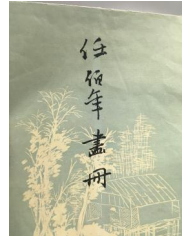 任伯年畫冊